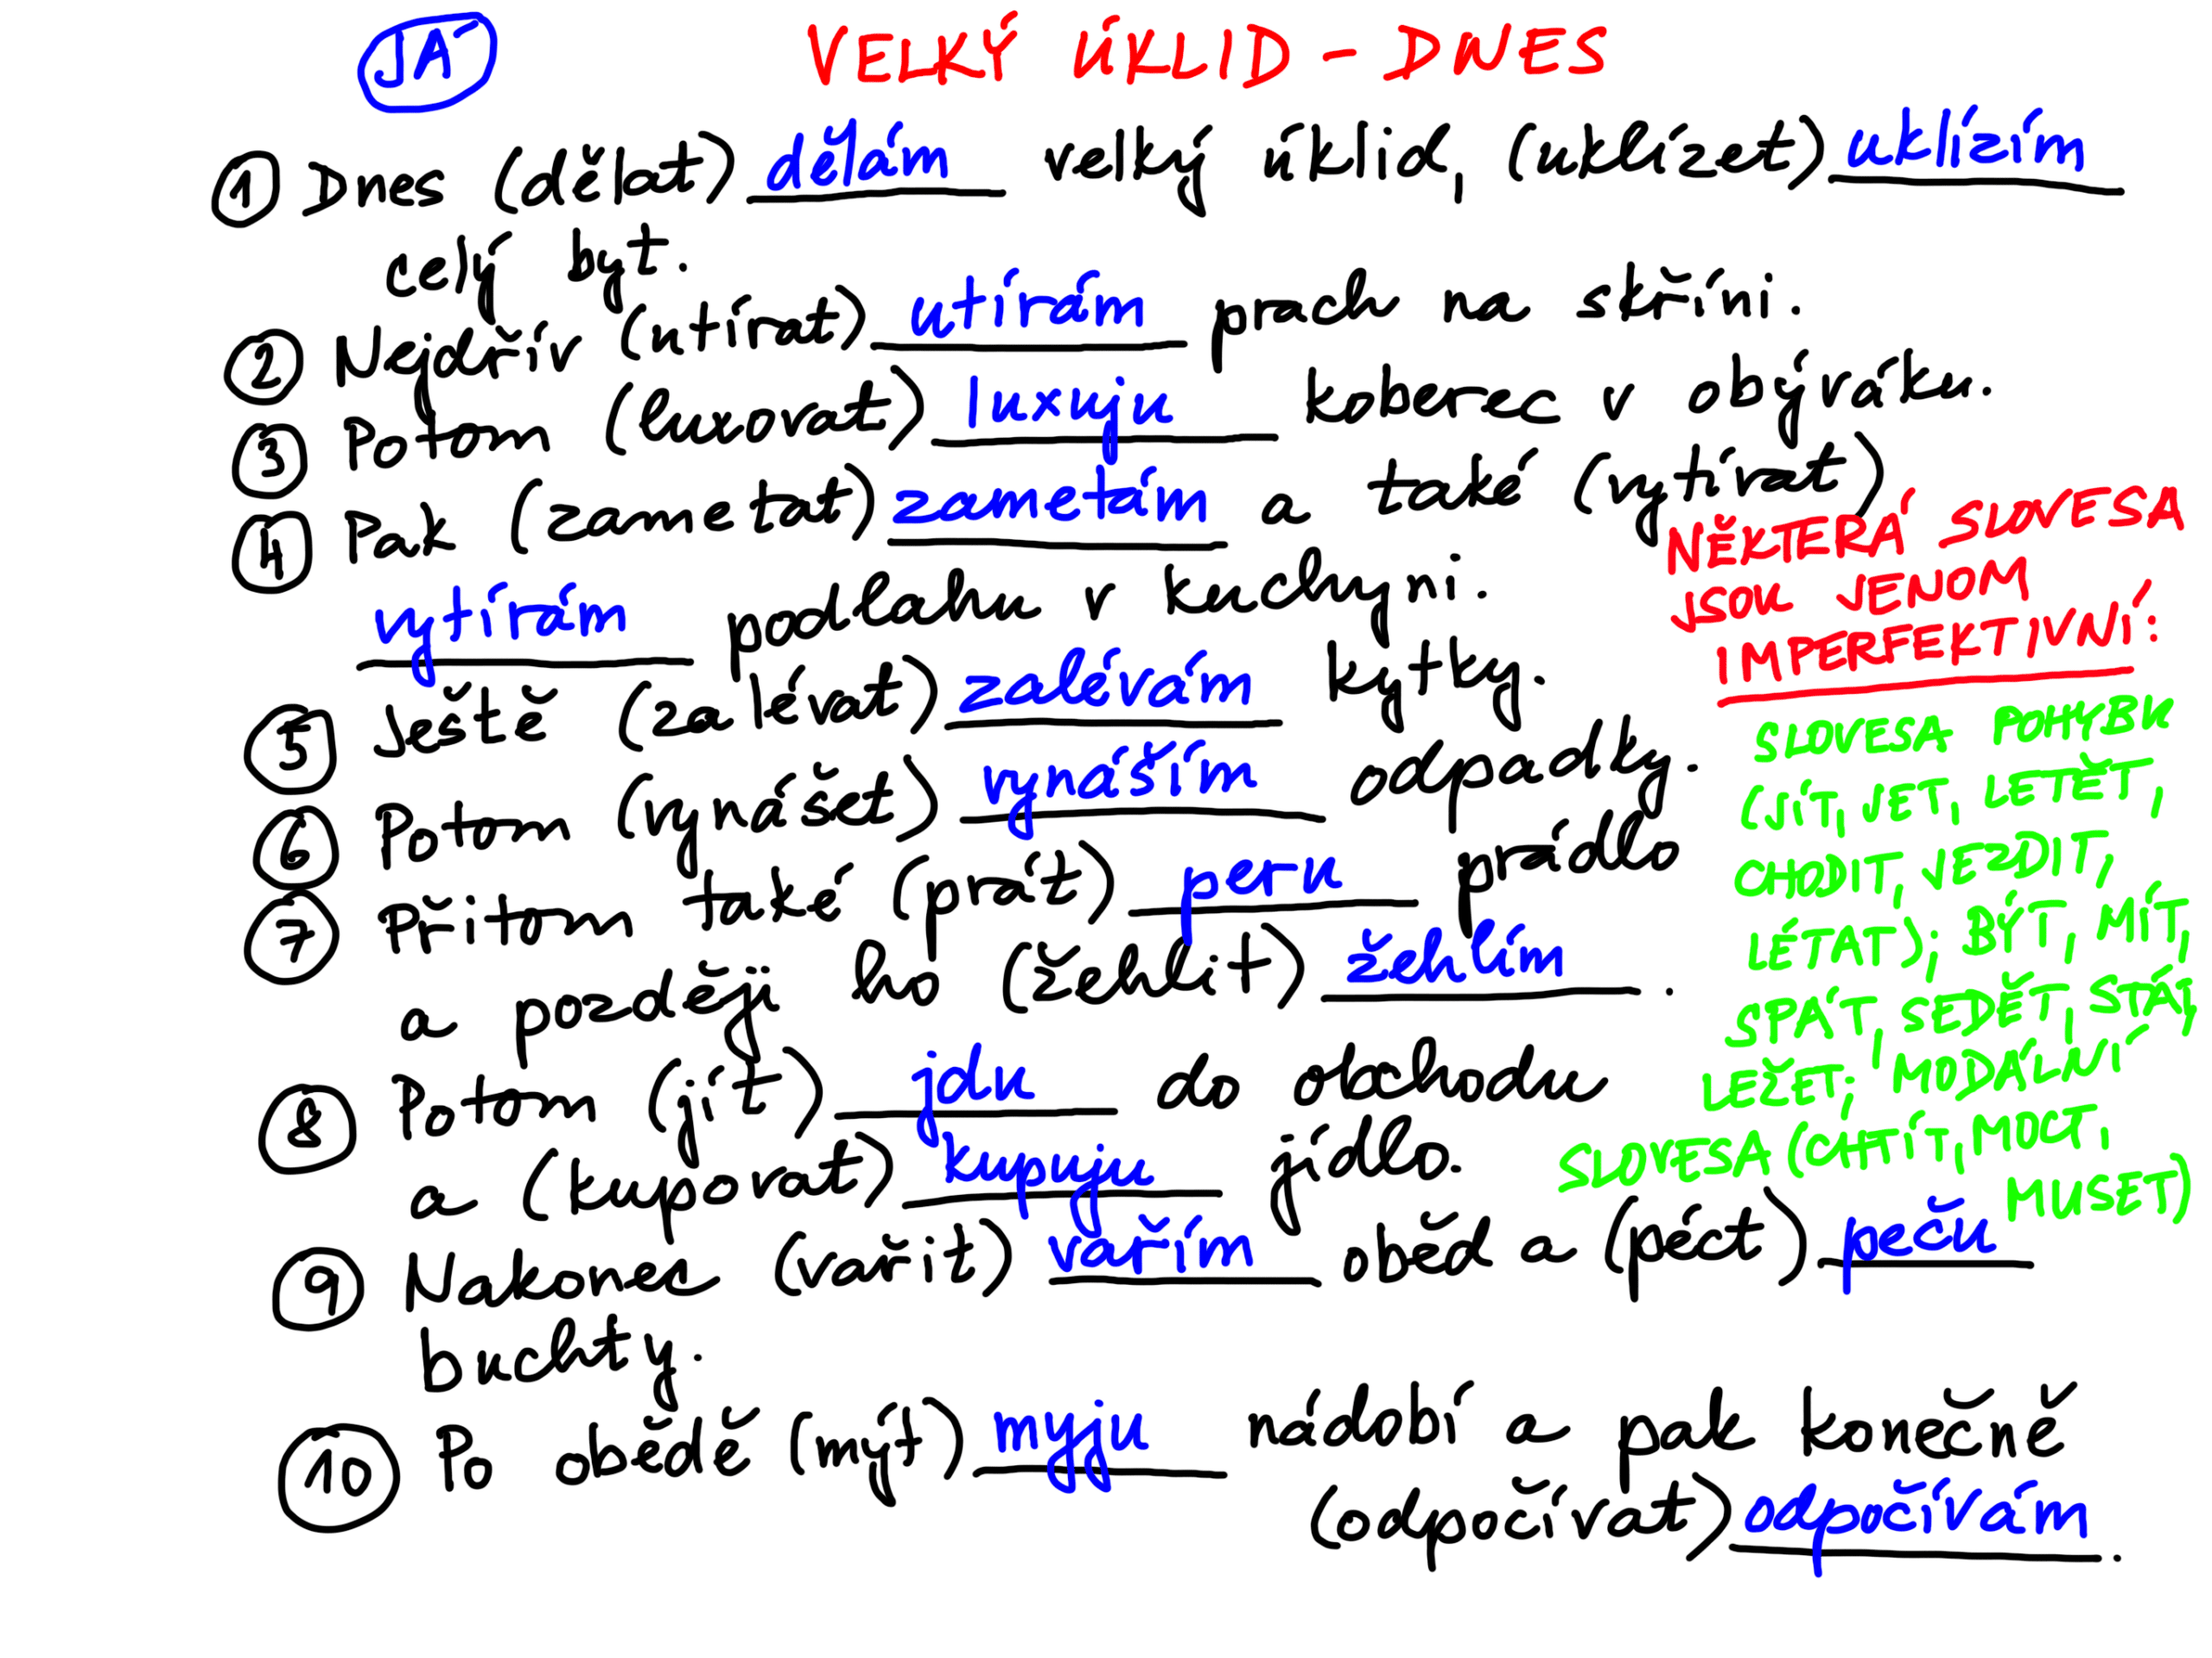 JÁ
VELKÝ ÚKLID - DNES
1 Dnes (dělat) dělám velký úklid, (uklízet) uklízím
celý byt.
2 Nejdřív (utírat) utírám prach na skříni.
3 Potom (luxovat) luxuju koberec v obýváku.
4 Pak (zametat) zametám a také (vytírat)
vytírám podlahu v kuchyni.
5 Ještě (zalévat) zalévám kytky.
6 Potom (vynášet) vynáším odpadky.
7 Přitom také (prát) peru prádlo
a později ho (žehlit) žehlím.
8 Potom (jít) jdu do obchodu
a (kupovat) kupuju jídlo.
9 Nakonec (vařit) vařím oběd a (péct) peču
buchty.
10 Po obědě (mýt) myju nádobí a pak konečně
(odpočívat) odpočívám.
NĚKTERÁ SLOVESA
JSOU JENOM
IMPERFEKTIVNÍ:
SLOVESA POHYBU
(JÍT, JET, LETĚT,
CHODIT, JEZDIT,
LÉTAT); BÝT, MÍT,
SPÁT, SEDĚT, STÁT,
LEŽET; MODÁLNÍ
SLOVESA (CHTÍT, MOCT,
MUSET)